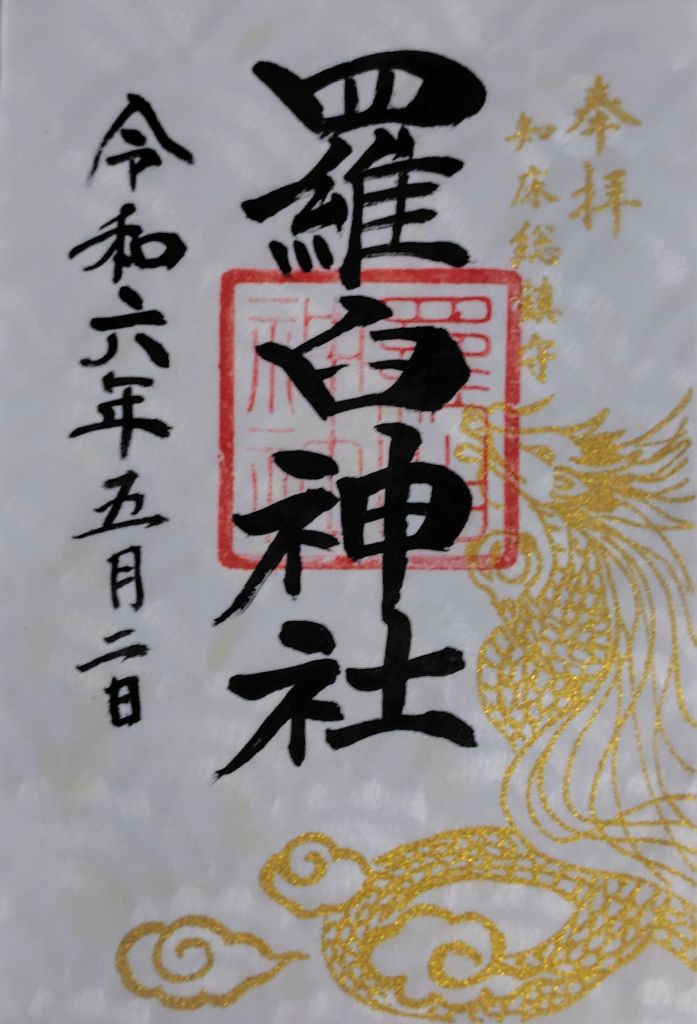 奉拝
知床総鎮守
羅臼神社
令和六年五月二日